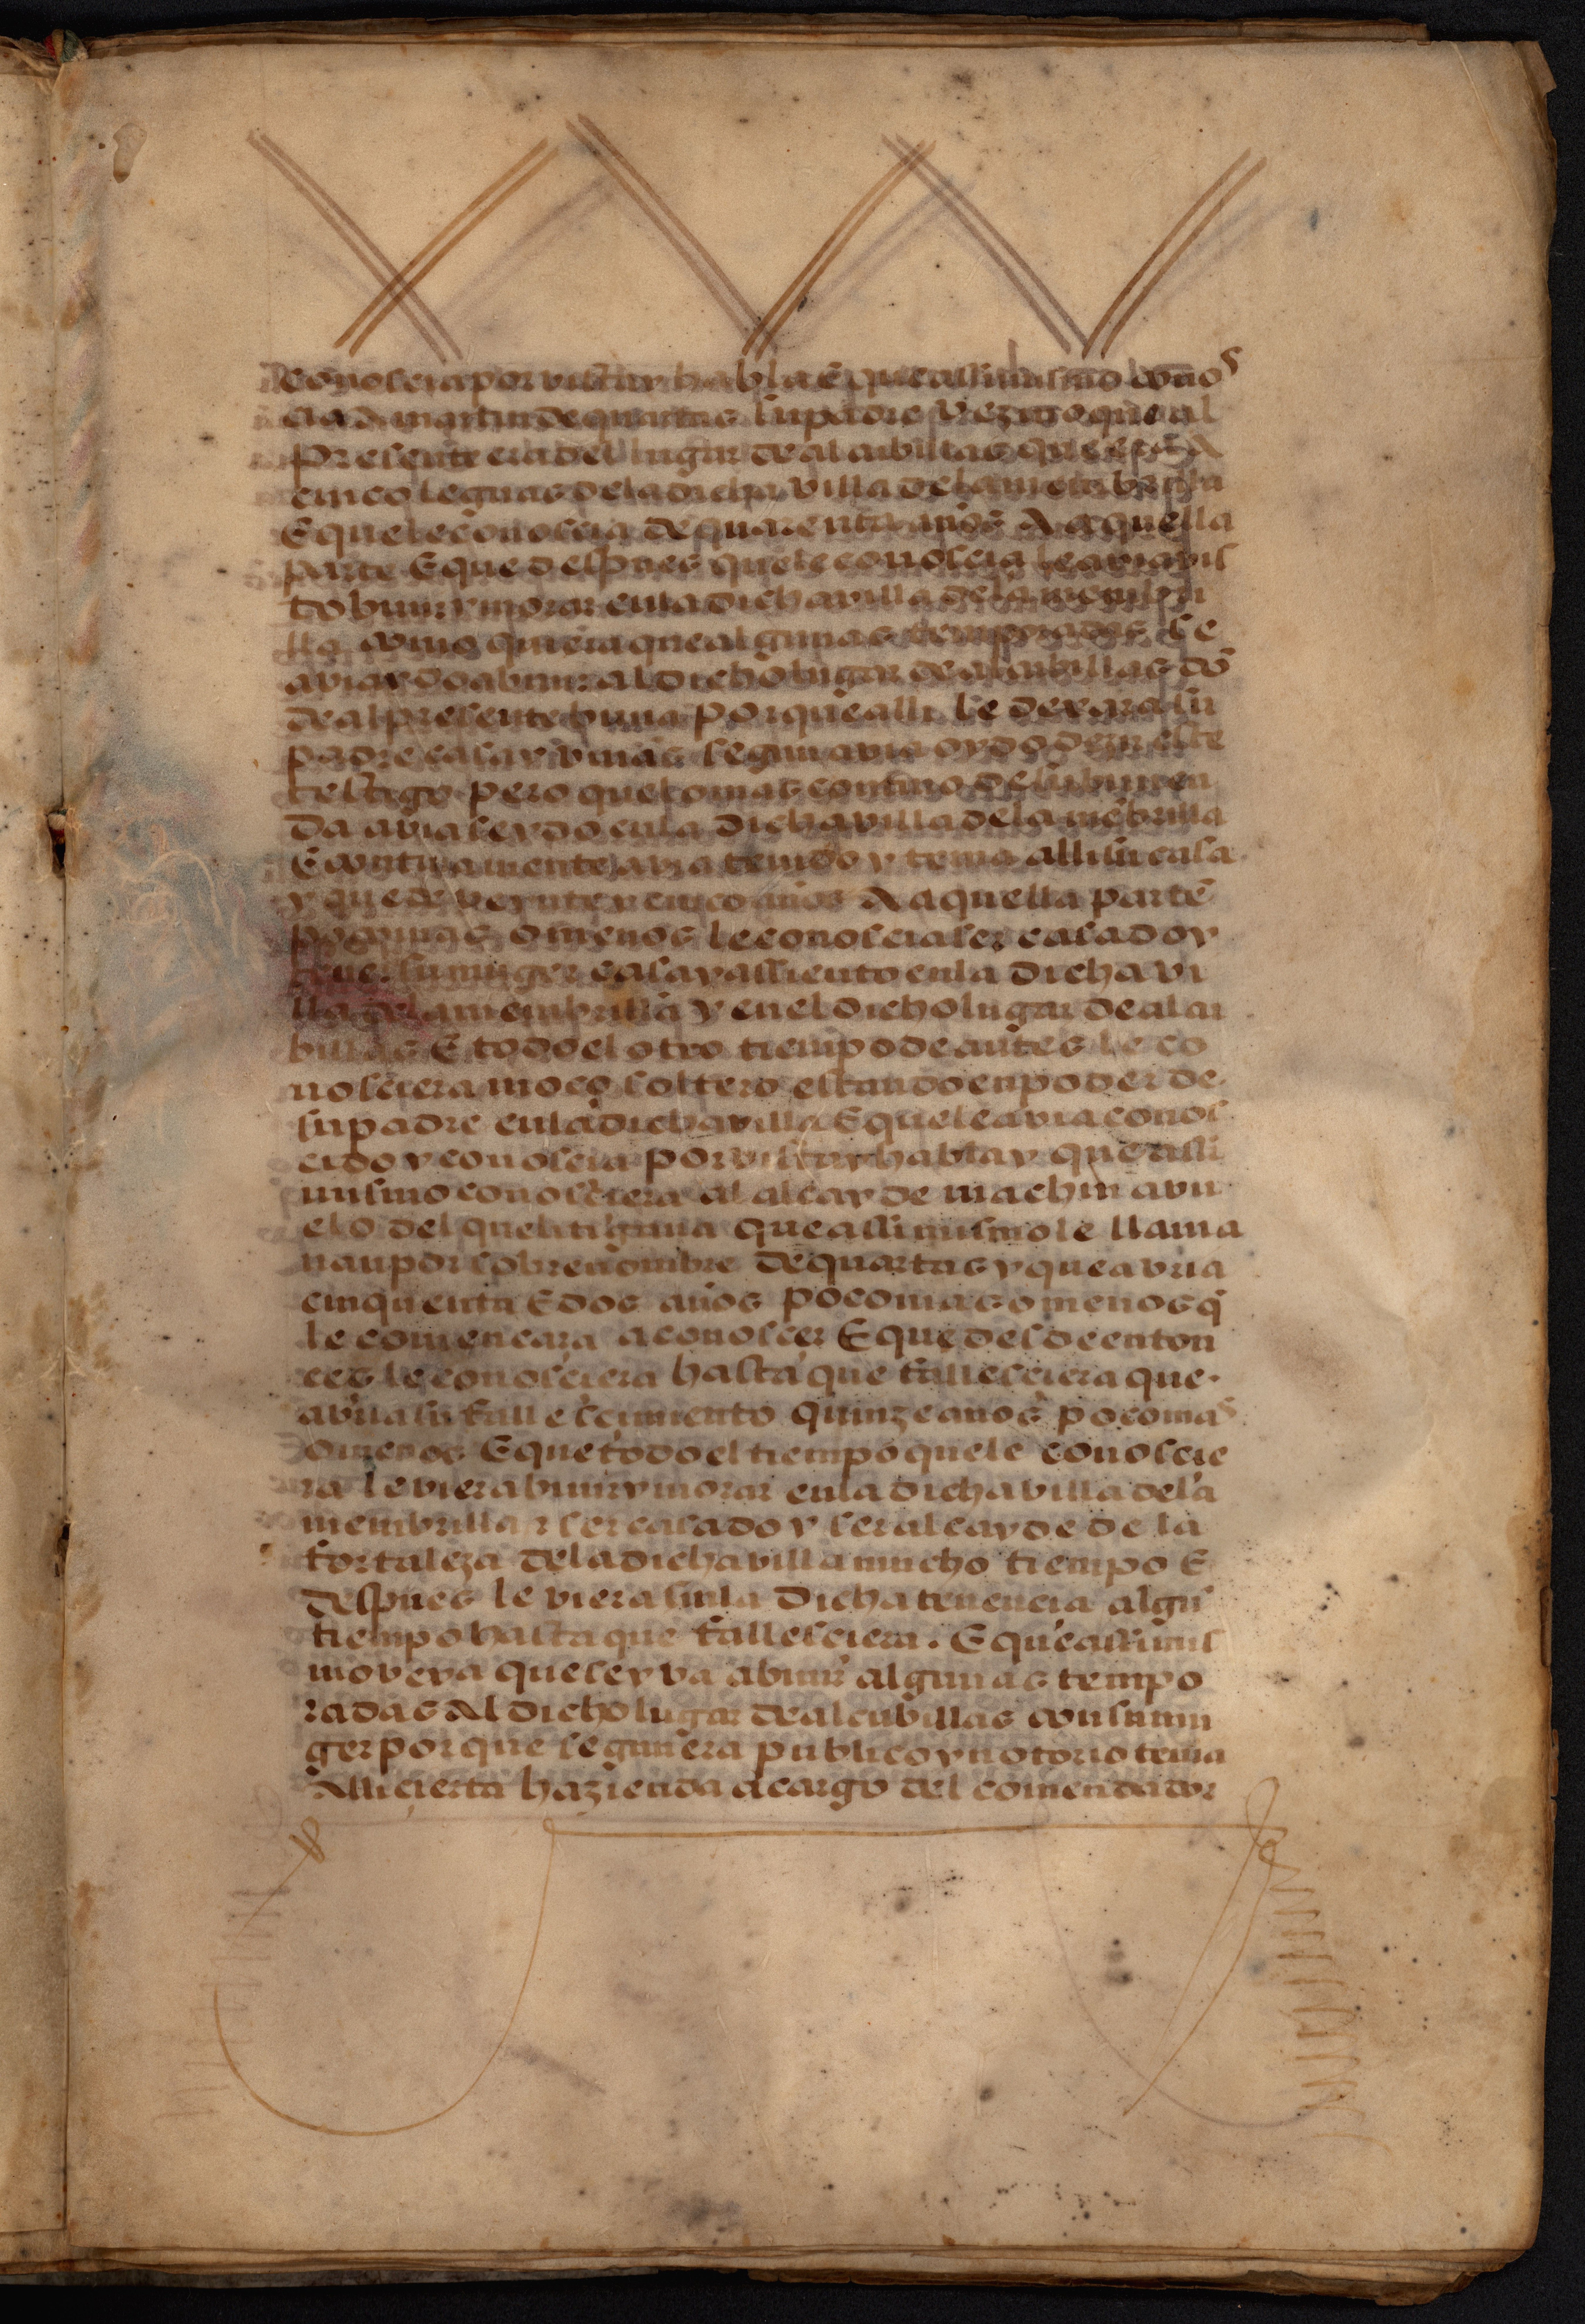 conoscia por vista y habla E que assi mismo conos
cia a martin de quartas su padre vezino que al
presente era del lugar de alcubillas que esta A
cinco leguas dela dicha villa dela membrilla
E que le conoscia de quarenta años A aquella
parte E que despues que le conoscia le avia vis
to buir y morar enla dicha villa dela membri
lla como quiera que algunas temporadas se
avia ydo a buir al dicho lugar de alcubillas dō
de al presente buia porque alli le dexara su
padre casa y vinas segun avia oydo dezir este
testigo pero que lo mas contino de su buien
da avia seydo enla dicha villa dela mēbrilla
E continuamente avia tenido y tenia alli su casa
y que de veynte y cinco años A aquella parte
poco mas o menos le conoscia ser casado y
tener su muger casa y assiento enla dicha vi
lla dela membrilla y en el dicho lugar de alcu
billas E todo el otro tiempo de antes le co
nosciera moço soltero estando en poder de
su padre enla dicha villa E que le avia conos
cido y conoscia por vista y habla y que assi
mismo conosciera al alcayde machin avu
elo del que litigava que assi mismo le llama
uan por sobrenombre de quartas y que avria
cinquenta E dos años poco mas o menos q̄
le començara a conoscer E que desde enton
ces le conosciera hasta que fallesciera que
avria su fallescimiento quinze años poco mas
o menos E que todo el tiempo que le conoscie
ra le viera buir y morar enla dicha villa dela
membrilla r ser casado y ser alcayde de la
fortaleza dela dicha villa mucho tiempo E
despues le viera sin la dicha tenencia algū
tiempo hasta que fallesciera. E que assi mis
mo veya que se yva a buir algunas tempo
radas Al dicho lugar de alcubillas con su mu
ger porque segun era publico y notorio tenia
Alli cierta hazienda a cargo del comendador